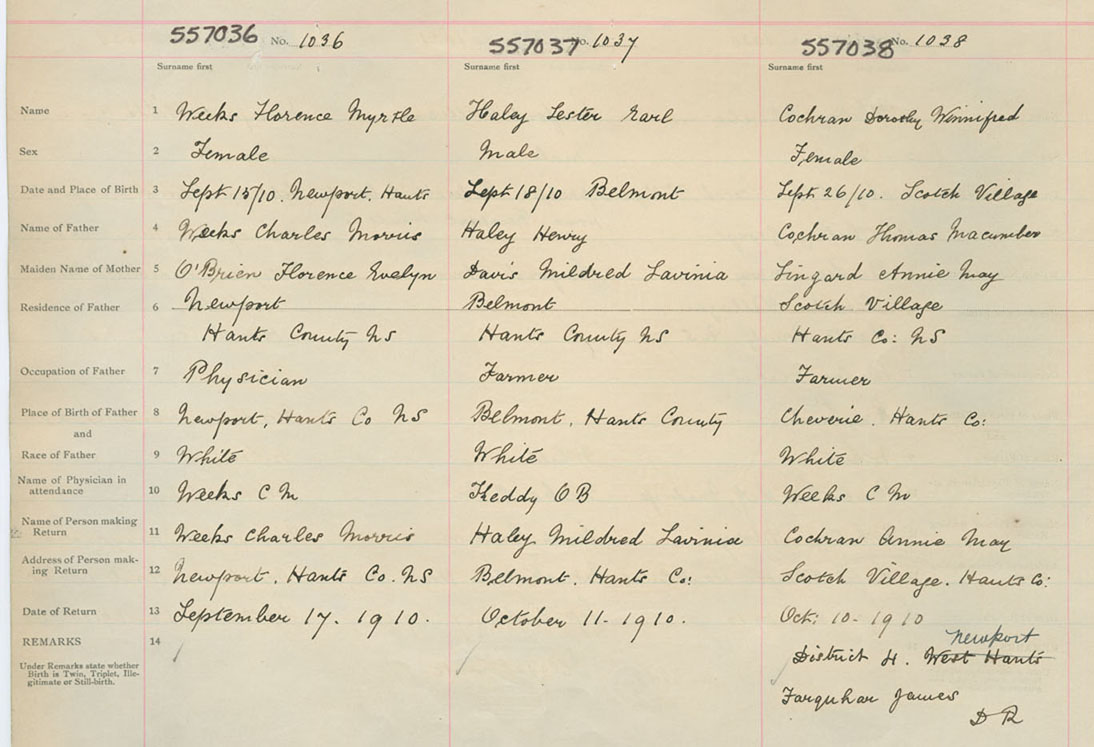 557036 No. 1036 557037 No. 1037 557038 No. 1038
Surname first Surname first Surname first
Name 1 Weeks Florence Myrtle Haley Lester Earl Cochran Dorothy Winnifred
Sex 2 Female Male Female
Date and Place of Birth 3 Sept 15/10. Newport. Hants Sept 18/10 Belmont Sept 26/10. Scotch Village
Name of Father 4 Weeks Charles Morris Haley Henry Cochran Thomas Macumber
Maiden Name of Mother 5 O'Brien Florence Evelyn Davis Mildred Lavinia Lingard Annie May
Residence of Father 6 Newport Belmont Scotch Village
Hants County NS Hants County NS Hants Co: NS
Occupation of Father 7 Physician Farmer Farmer
Place of Birth of Father 8 Newport, Hants Co NS Belmont, Hants County Cheverie. Hants Co:
and
Race of Father 9 White White White
Name of Physician in
attendance 10 Weeks C M Keddy O B Weeks C M
Name of Person making
Return 11 Weeks Charles Morris Haley Mildred Lavinia Cochran Annie May
Address of Person mak-
ing Return 12 Newport. Hants Co. NS Belmont. Hants Co: Scotch Village. Hants Co:
Date of Return 13 September 17. 1910. October 11-1910. Oct: 10-1910
REMARKS 14 Newport
Under Remarks state whether District 4. West Hants
Birth is Twin, Triplet, Ille-
gitimate or Still-birth.
Farquhar James
D R